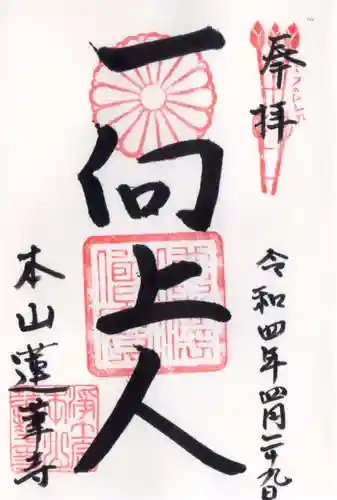 奉拝
一向上人
令和四年四月二十九日
本山蓮華寺